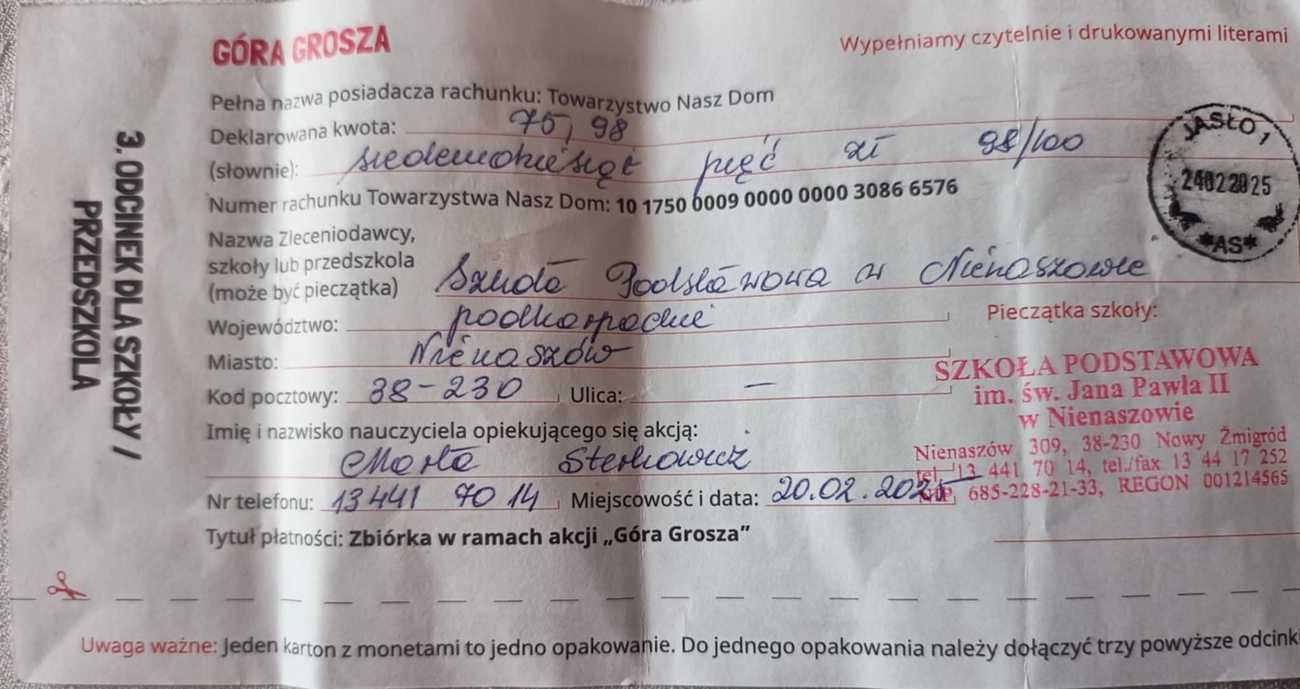 GÓRA GROSZA
Wypełniamy czytelnie i drukowanymi literami
Pełna nazwa posiadacza rachunku: Towarzystwo Nasz Dom
Deklarowana kwota: 75,98
(słownie): siedemdziesiąt pięć zł 98/100
Numer rachunku Towarzystwa Nasz Dom: 10 1750 0009 0000 0000 3086 6576
JASŁO 1
24022025
*AS*
Nazwa Zleceniodawcy,
szkoły lub przedszkola
(może być pieczątka) Szkoła Podstawowa w Nienaszowie
Województwo: podkarpackie
Pieczątka szkoły:
Miasto: Nienaszów
Kod pocztowy: 38-230 Ulica: —
SZKOŁA PODSTAWOWA
im. św. Jana Pawła II
w Nienaszowie
Nienaszów 309, 38-230 Nowy Żmigród
tel. 13 441 70 14, tel./fax 13 44 17 252
NIP 685-228-21-33, REGON 001214565
Imię i nazwisko nauczyciela opiekującego się akcją:
Marta
Nr telefonu: 13 441 70 14 Miejscowość i data: 20.02.2025
Tytuł płatności: Zbiórka w ramach akcji „Góra Grosza”
3. ODCINEK DLA SZKOŁY /
PRZEDSZKOLA
Uwaga ważne: Jeden karton z monetami to jedno opakowanie. Do jednego opakowania należy dołączyć trzy powyższe odcinki